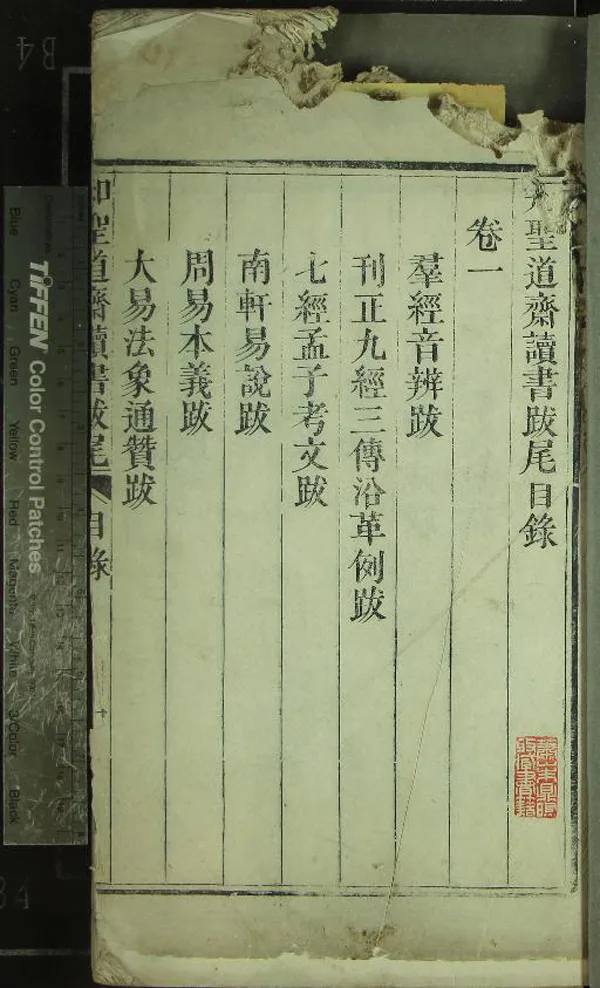 知聖道齋讀書跋尾目錄
卷一
羣經音辨跋
刊正九經三傳沿革例跋
七經孟子考文跋
南軒易說跋
周易本義跋
大易法象通贊跋
知聖道齋讀書跋尾 目錄 一
TIFFEN Color Control Patches
Blue Cyan Green Yellow Red Magenta White 3/Color Black
B4
B4